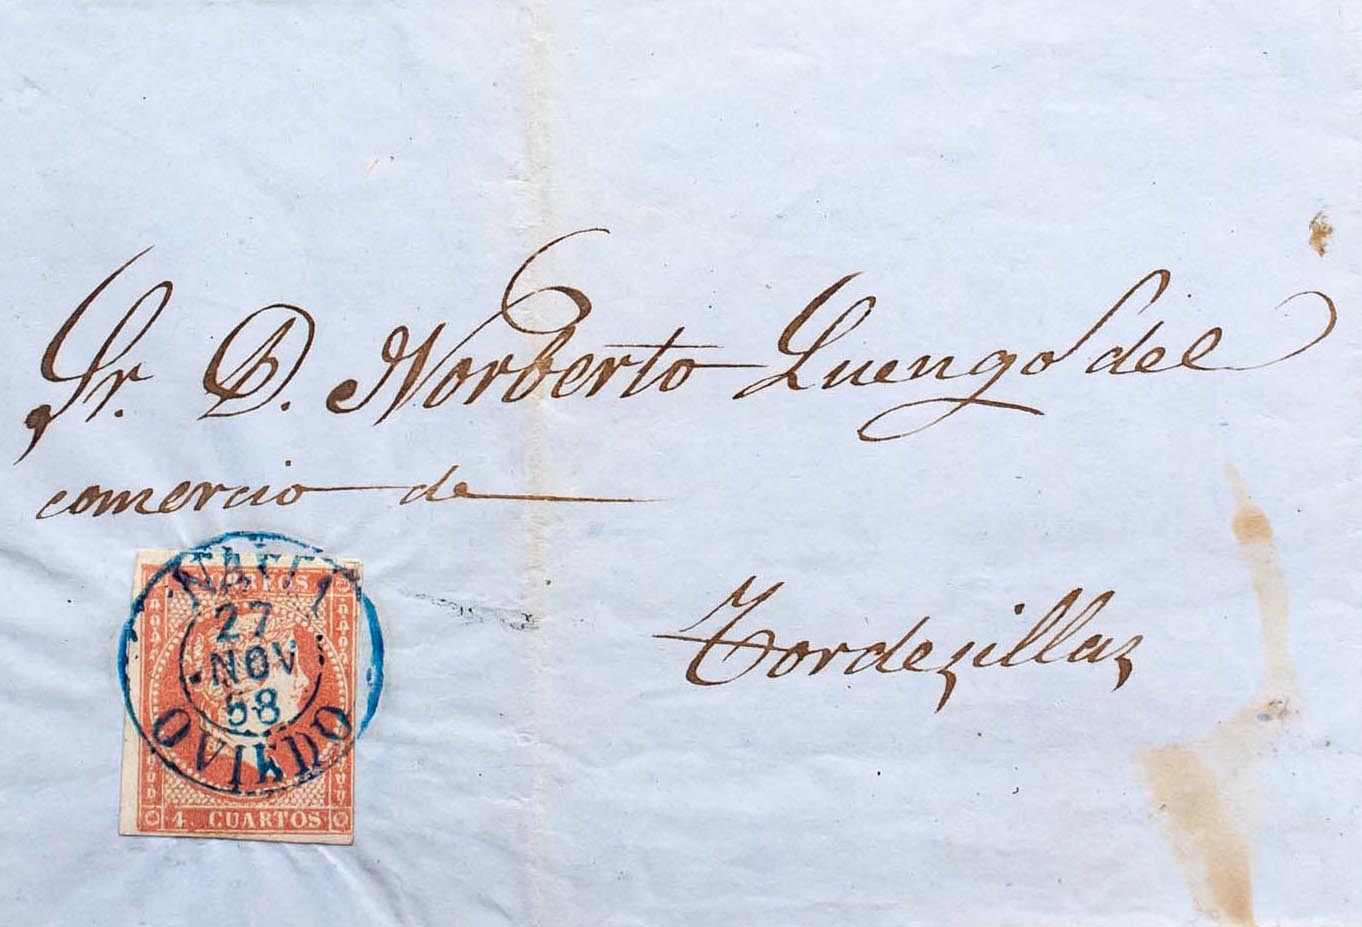 Sr. D. Norberto Luengo del
comercio de
Tordezillaz
CORREOS
27
NOV
58
OVIEDO
4 CUARTOS